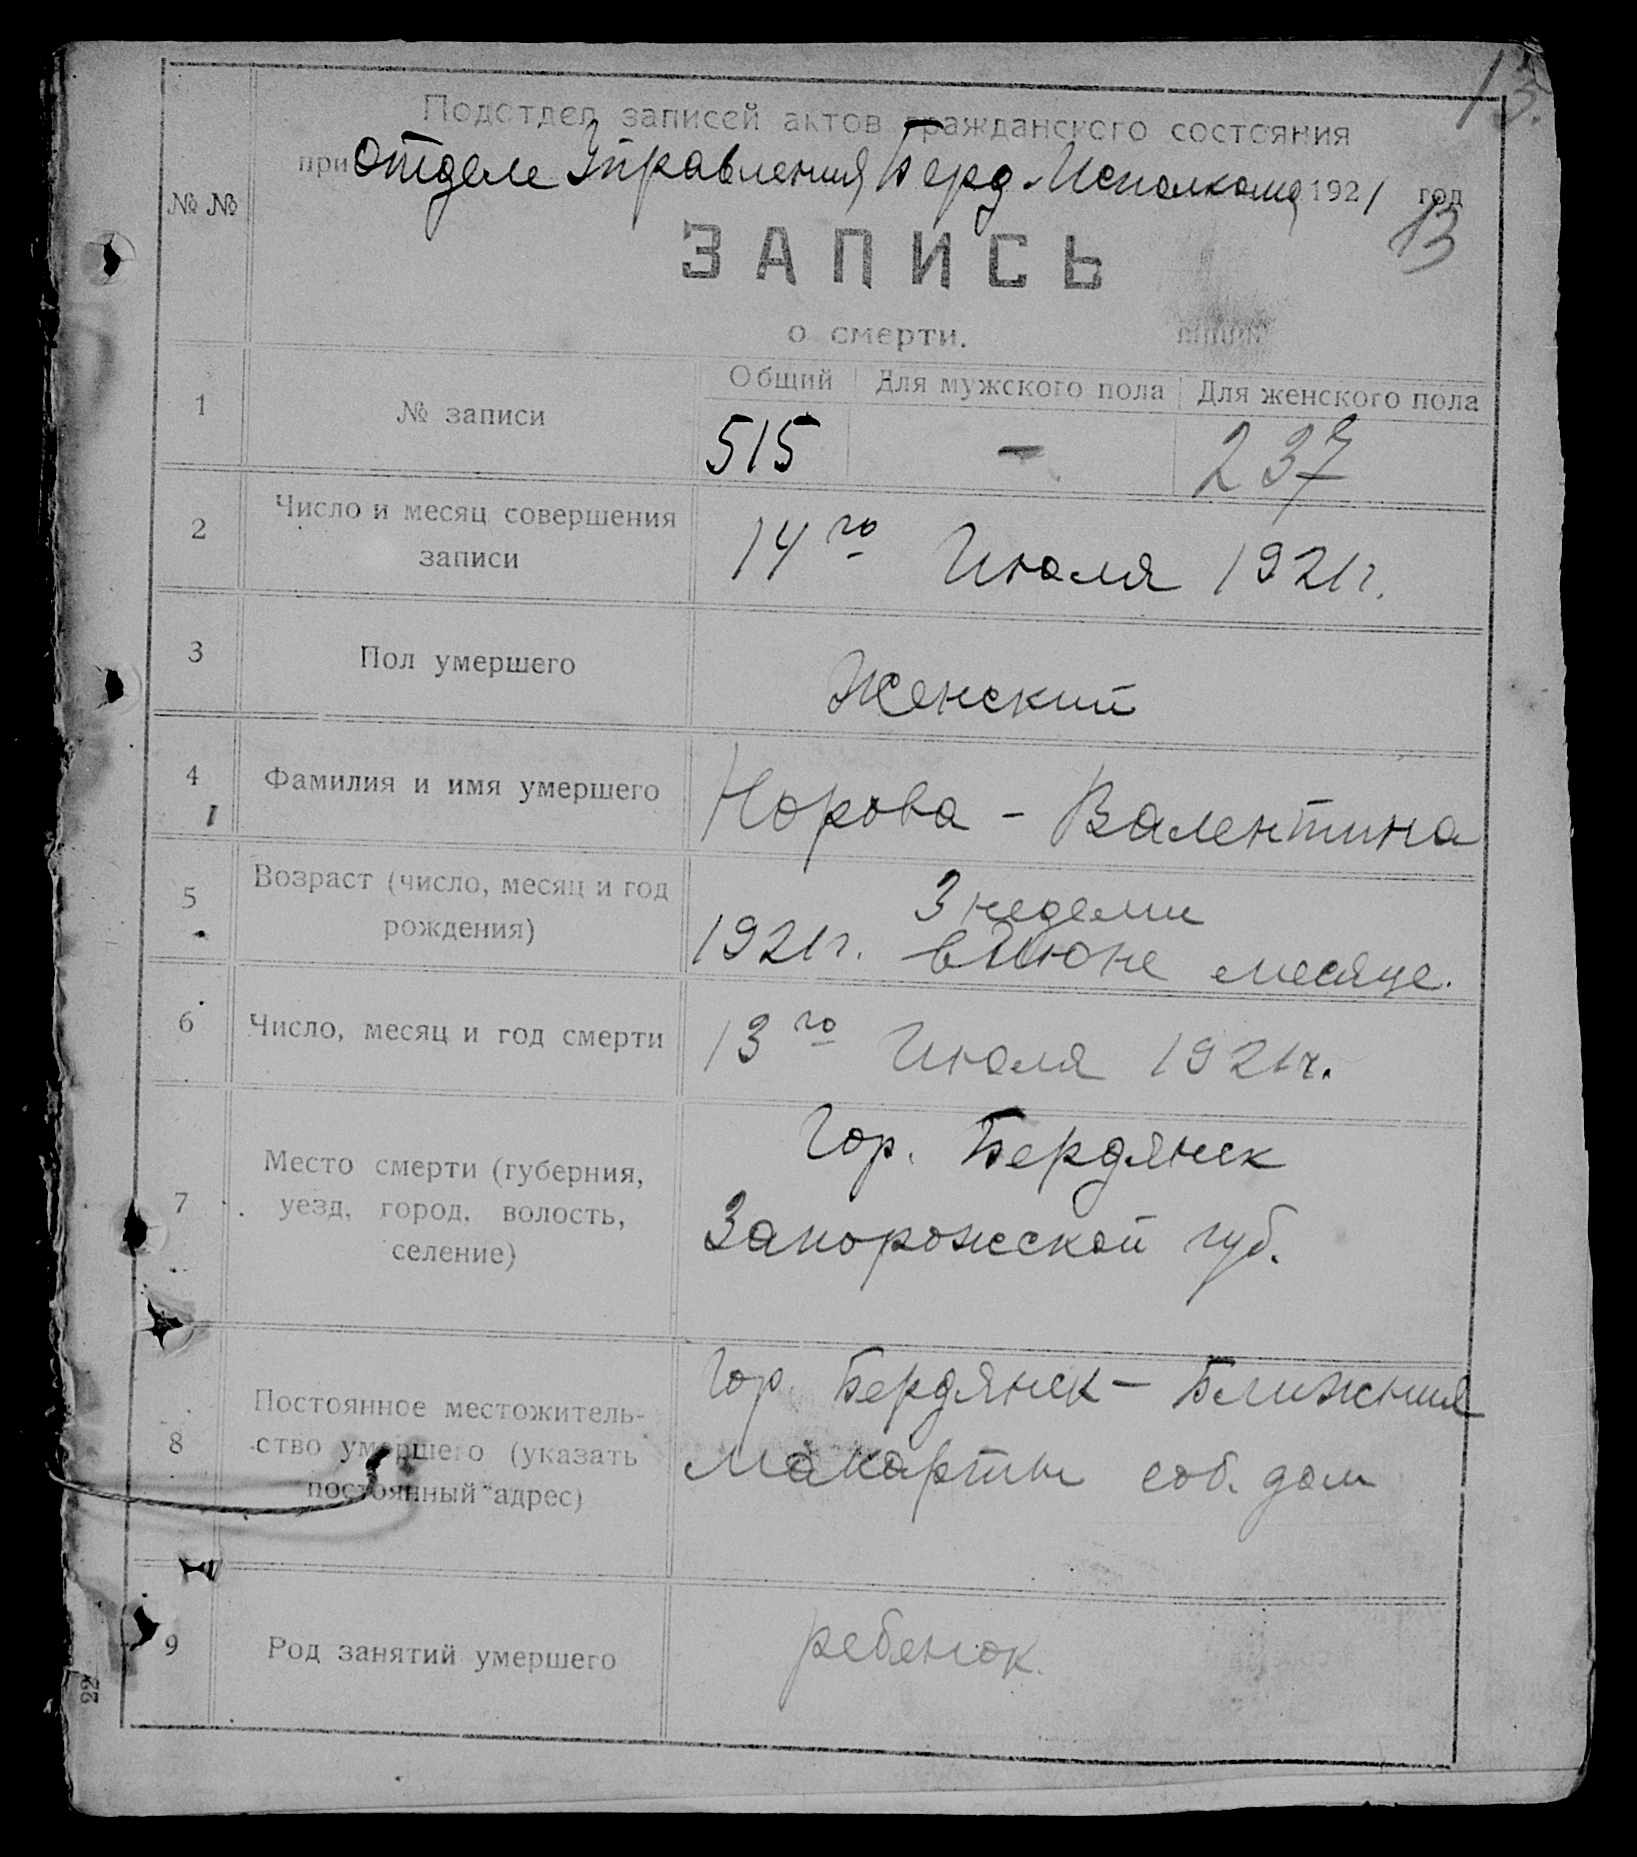 13.
Подотдел записей актов гражданского состояния
при Отделе Управления Берд. Исполкома 1921 год
13
№ №
ЗАПИСЬ
о смерти.
1
№ записи
Общий Для мужского пола Для женского пола
515 - 237
2
Число и месяц совершения
записи
14го Июля 1921г.
3
Пол умершего
Женский
4
Фамилия и имя умершего
Норова - Валентина
5
Возраст (число, месяц и год
рождения)
3 недели
1921г. в Июне месяце.
6
Число, месяц и год смерти
13го Июля 1921г.
7
Место смерти (губерния,
уезд, город, волость,
селение)
Гор. Бердянск
Запорожской губ.
8
Постоянное местожитель-
ство умершего (указать
постоянный адрес)
Гор. Бердянск - Ближния
макорты соб. дом
9
Род занятий умершего
ребенок.
22